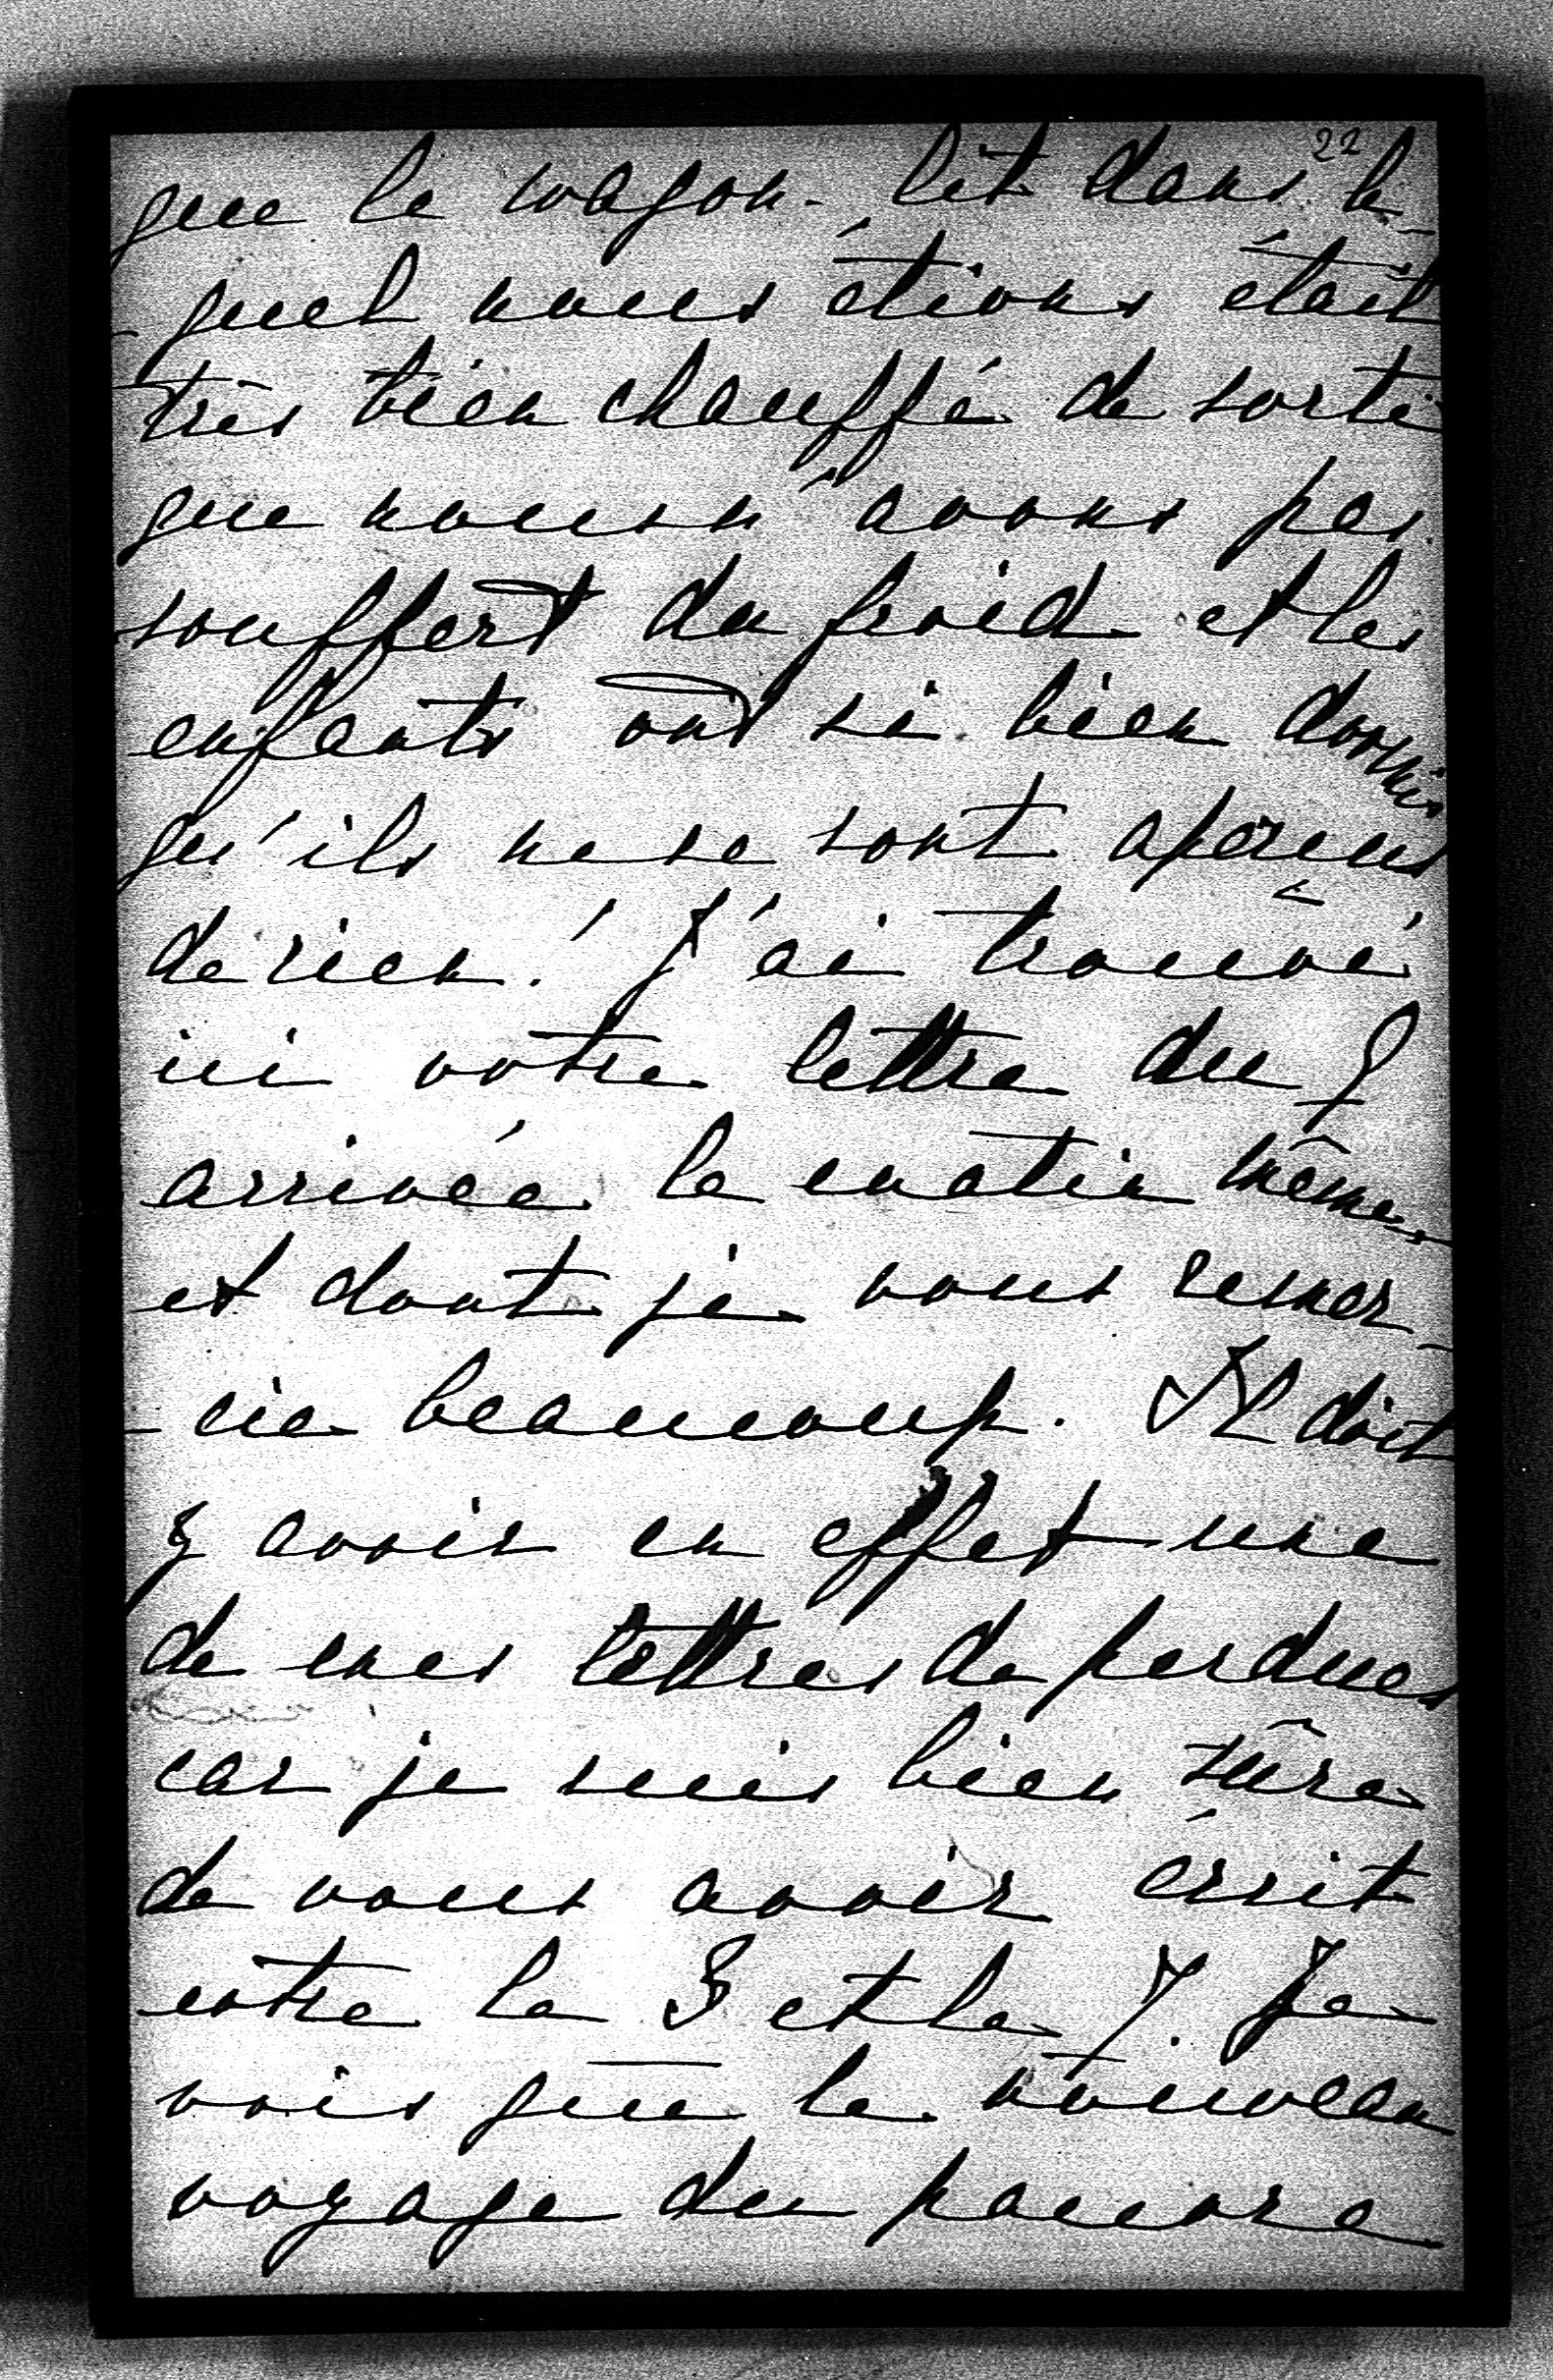 22
que le wagon-lit dans le-
-quel nous étions était
très bien chauffé de sorte
que nous n'avons pas
souffert du froid et les
enfants ont si bien dormis
qu'ils ne se sont aperçus
de rien! J'ai trouvé
ici votre lettre du
arrivée le matin même
et dont je vous remer-
-cie beaucoup. Il doit
y avoir en effet une
de mes lettres de perdues
car je suis bien sûre
de vous avoir écrit
entre le 3 et le 7. Je
vois que le nouveau
voyage du pauvre